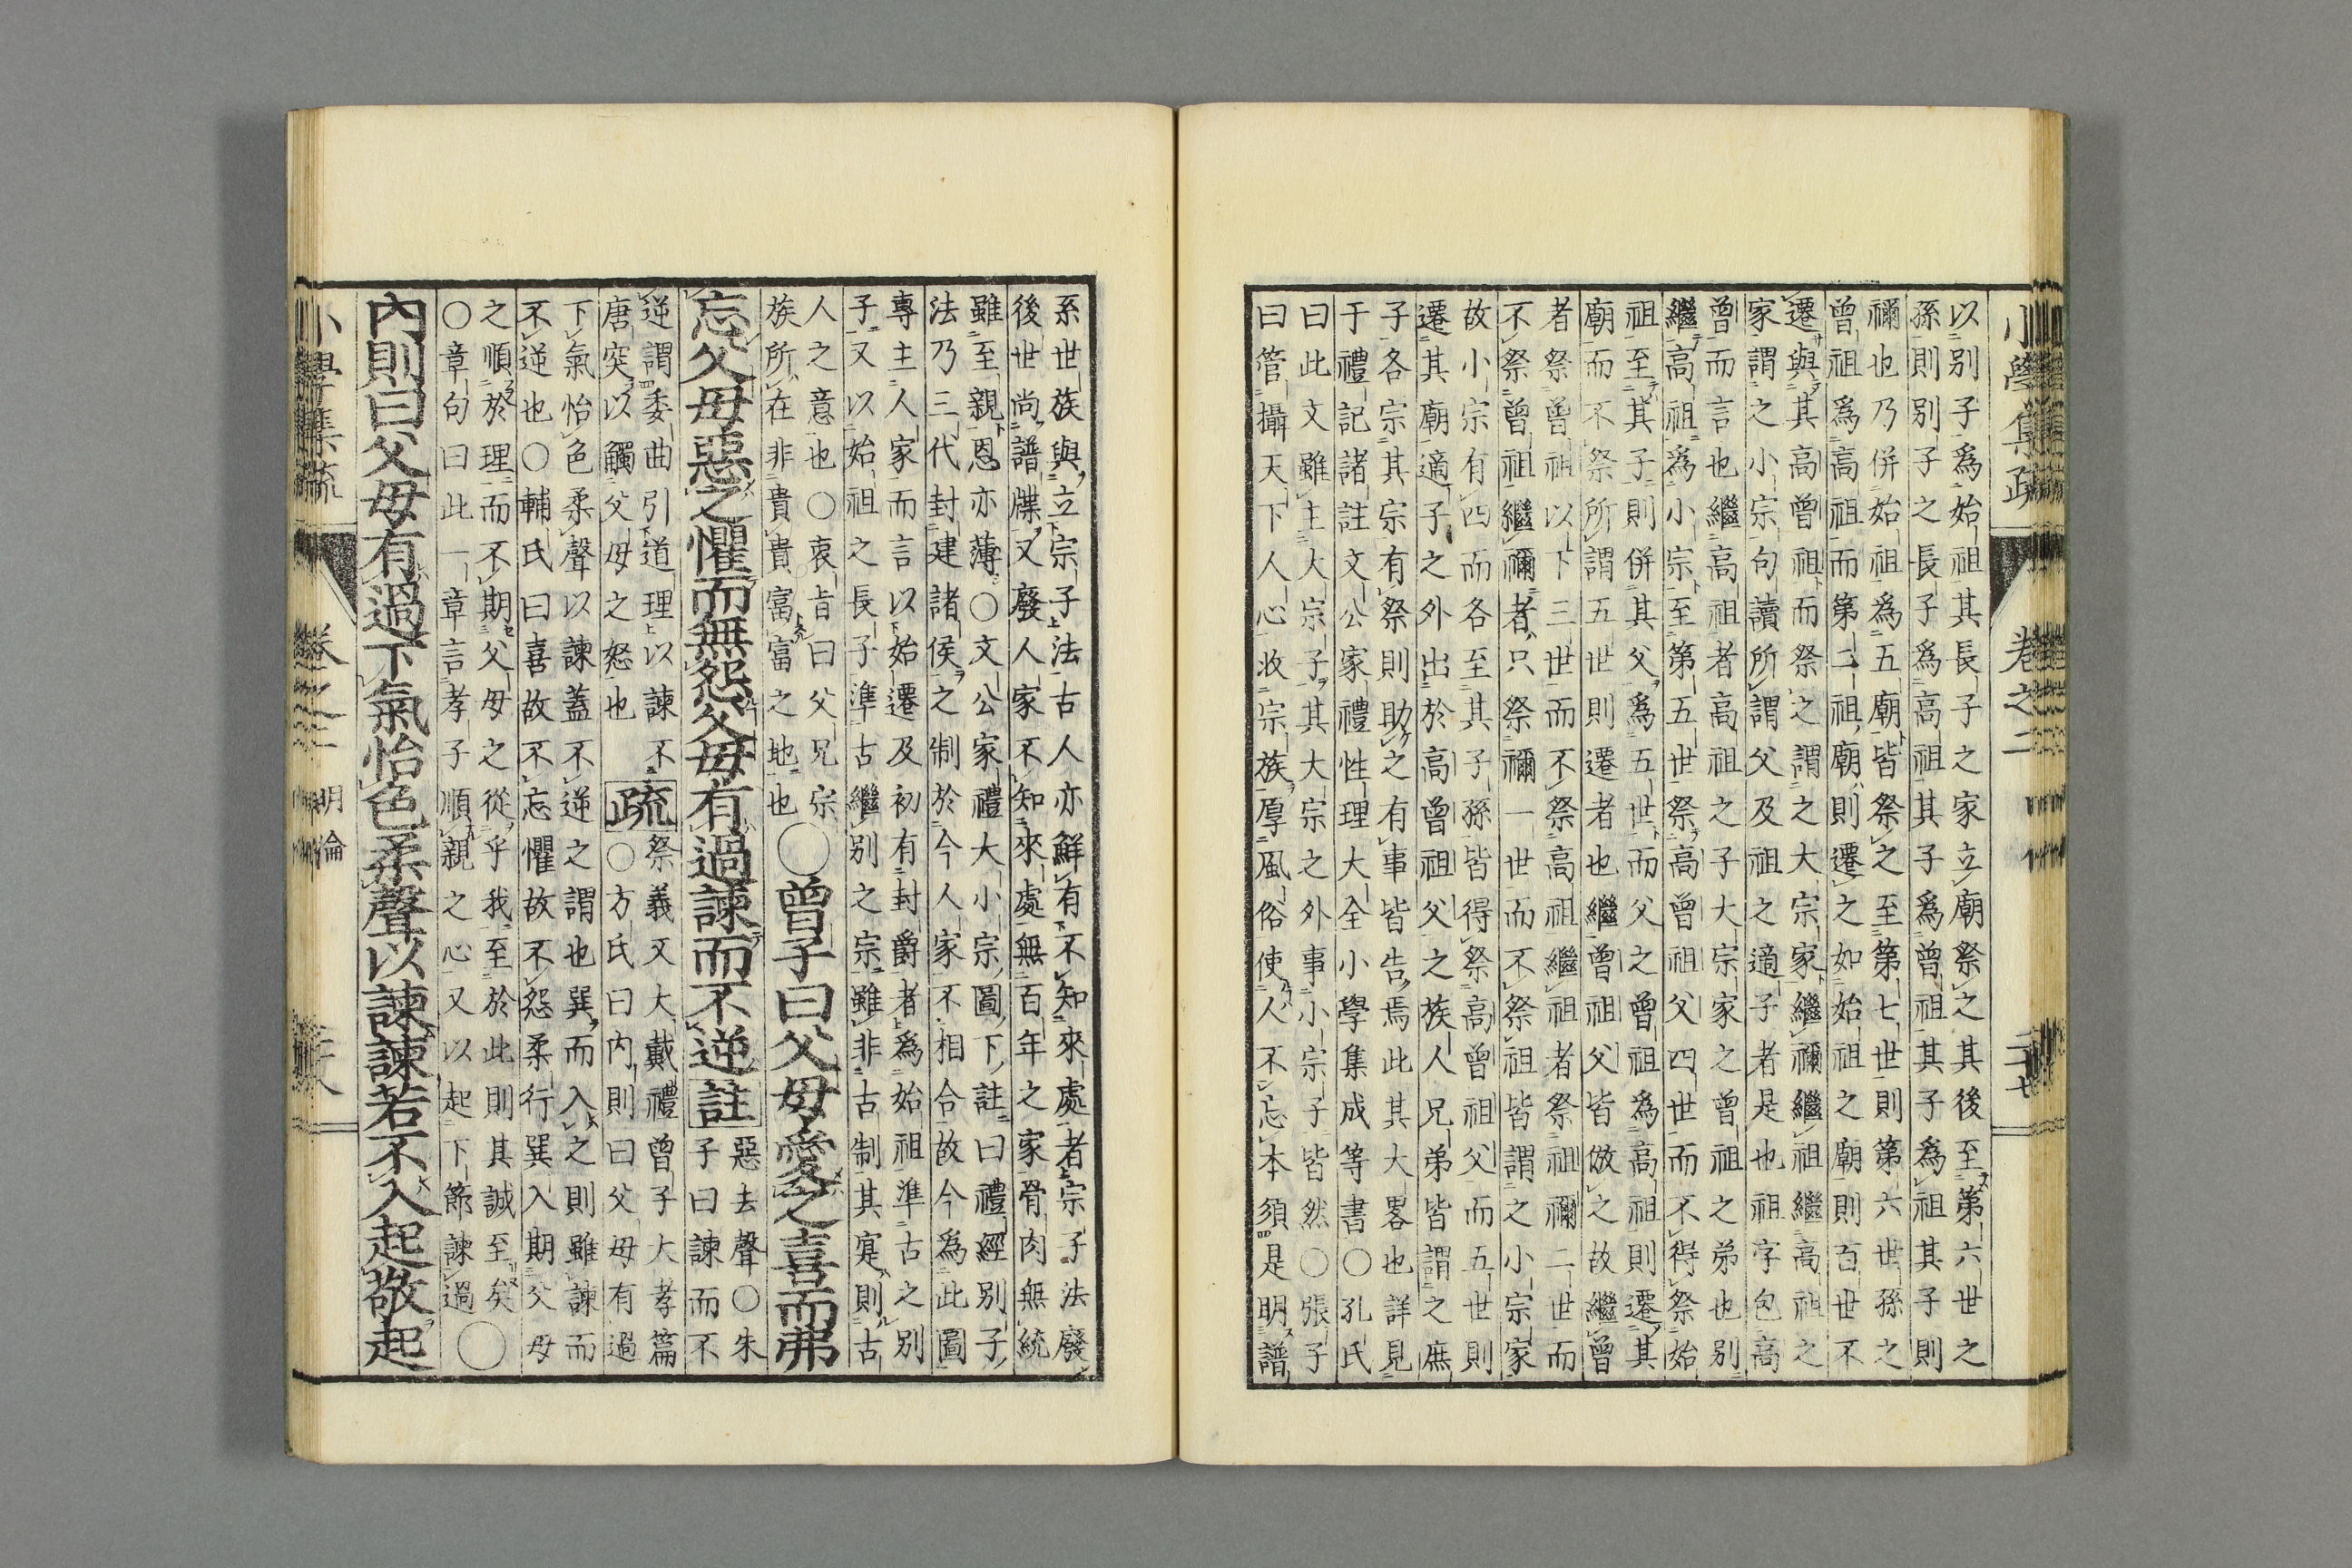 小學集疏 卷之二 二十七
以別子爲始祖其長子之家立廟祭之其後至第六世之
孫則別子之長子爲高祖其子爲曾祖其子爲祖其子則
禰也乃併始祖爲五廟皆祭之至第七世則第六世孫之
曾祖爲高祖而第二祖廟則遷之如始祖之廟則百世不
遷與其高曾祖而祭之謂之大宗家繼禰繼祖繼高祖之
家謂之小宗句讀所謂父及祖之適子者是也祖字包高
曾而言也繼高祖者高祖之子大宗家之曾祖之弟也別
繼高祖爲小宗至第五世祭高曾祖父四世而不得祭始
祖至其子則併其父爲五世而父之曾祖爲高祖則遷其
廟而不祭所謂五世則遷者也繼曾祖父皆倣之故繼曾
者祭曾祖以下三世而不祭高祖繼祖者祭祖禰二世而
不祭曾祖繼禰者只祭禰一世而不祭祖皆謂之小宗家
故小宗有四而各至其子孫皆得祭高曾祖父而五世則
遷其廟適子之外出於高曾祖父之族人兄弟皆謂之庶
子各宗其宗有祭則助之有事皆告焉此其大畧也詳見
于禮記諸註文公家禮性理大全小學集成等書○孔氏
曰此文雖主大宗子其大宗之外事小宗子皆然○張子
曰管攝天下人心收宗族厚風俗使人不忘本須是明譜
系世族與立宗子法古人亦鮮有不知來處者宗子法廢
後世尚譜牒又廢人家不知來處無百年之家骨肉無統
雖至親恩亦薄○文公家禮大小宗圖下註曰禮經別子
法乃三代封建諸侯之制於今人家不相合故今爲此圖
專主人家而言以始遷及初有封爵者爲始祖準古之別
子又以始祖之長子準古繼別之宗雖非古制其寔則古
人之意也○衷旨曰父兄宗
族所在非貴貴富富之地也
○曾子曰父母愛之喜而弗
忘父母惡之懼而無怨父母有過諫而不逆註
惡去聲○朱
子曰諫而不
逆謂委曲引道理以諫不
唐突以觸父母之怒也
疏
祭義又大戴禮曾子大孝篇
○方氏曰內則曰父母有過
下氣怡色柔聲以諫蓋不逆之謂也巽而入之則雖諫而
不逆也○輔氏曰喜故不忘懼故不怨柔行巽入期父母
之順於理而不期父母之從乎我至於此則其誠至矣
○章句曰此一章言孝子順親之心又以起下節諫過○
內則曰父母有過下氣怡色柔聲以諫諫若不入起敬起
小學集疏 卷之二 明倫